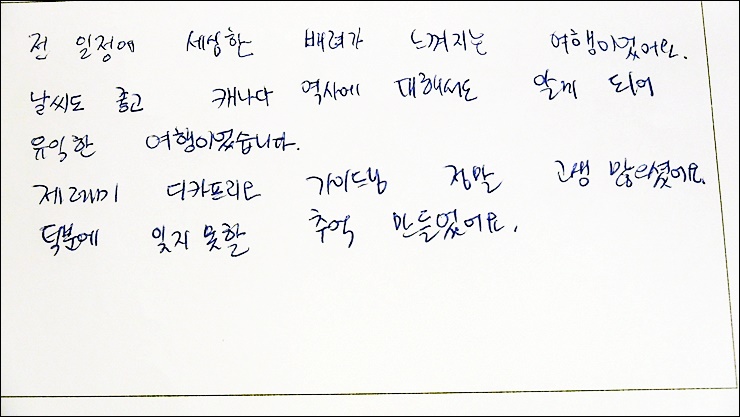 전 일정에 세심한 배려가 느껴지는 여행이었어요.
날씨도 좋고 캐나다 역사에 대해서도 알게 되어
유익한 여행이었습니다.
제레미 디카프리오 가이드님 정말 고생 많으셨어요.
덕분에 잊지 못할 추억 만들었어요.